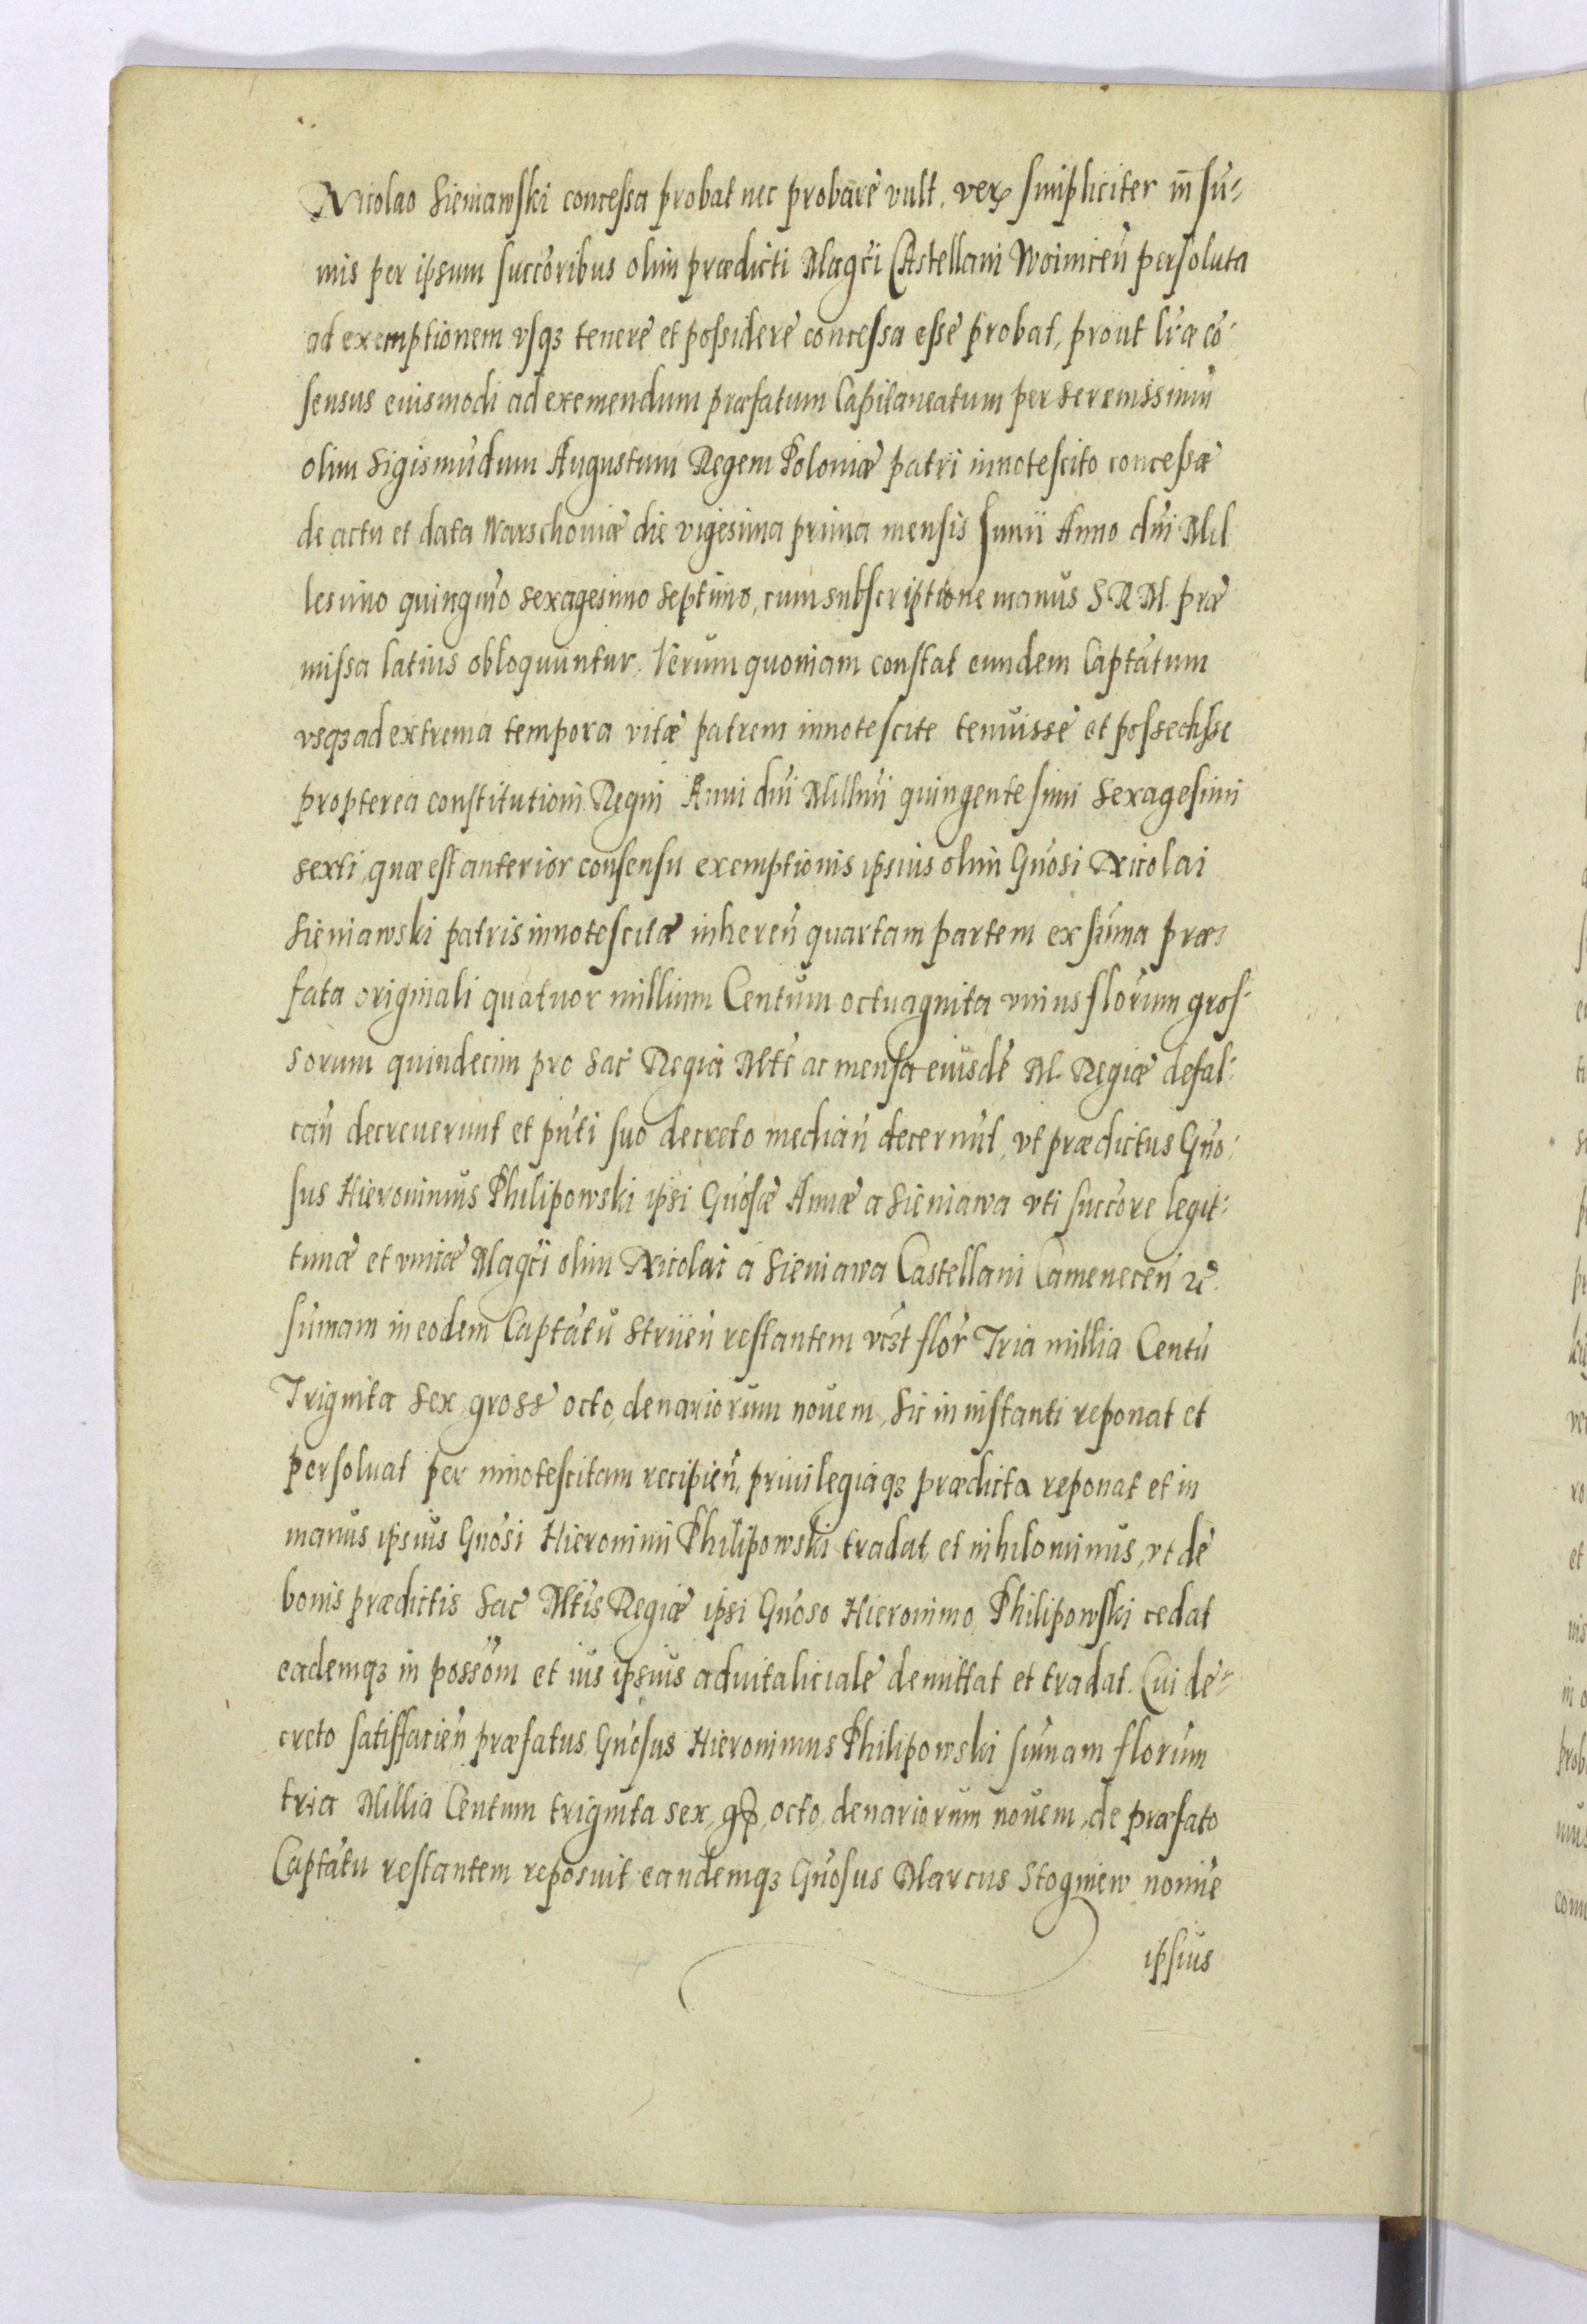 Nicolao Sieniawski concessa probat nec probare vult, verꝫ simpliciter in su-
mis per ipsum succoribus olim prædicti Magci Castellani Woinicen persoluta
ad exemptionem vsqꝫ tenere et possidere concessa esse probat, prout lræ co-
sensus eiusmodi ad exemendum præfatum Capitaneatum per serenissimu
olim Sigismudum Augustum Regem Poloniæ patri innotescito concessæ
de actu et data Warschoviæ die vigesima prima mensis Junii Anno dni Mil
lesimo quingmo sexagesimo septimo, cum subscriptione manus S. R. M. præ
missa latius obloquuntur. Verum quoniam constat eundem Captatum
vsqꝫ ad extrema tempora vitæ patrem innotescite tenuisse et possedisse
propterea constitutioni Regni Anni dni Millmi quingentesimi Sexagesimi
sexti, quæ est anterior consensu exemptionis ipsius olim Gnosi Nicolai
Sieniawski patris innotescitæ inheren quartam partem ex suma præ-
fata originali quatuor millium Centum octuaginta vnius florum gros-
sorum quindecim pro Sac Regia Mte ac mensa eiusde M. Regiæ defal-
can decreuerunt et pnti suo decreto median decernut, vt prædictus Gno-
sus Hieronimus Philipowski ipsi Gnosæ Annæ a Sieniawa vti succore legit-
timæ et vnicæ Magci olim Nicolai a Sieniawa Castellani Camenecen ꝛc.
sumam in eodem Captatu Striien restantem vcst flor Tria millia Centu
Triginta Sex, grosse octo, denariorum nouem, Sic in instanti reponat et
persoluat per innotescitam recipien, priuilegiaqꝫ prædicta reponat et in
manus ipsius Gnosi Hieronimi Philipowski tradat, et nihilominus, vt de
bonis prædictis Sac Mtis Regiæ ipsi Gnoso Hieronimo Philipowski cedat
eademqꝫ in possom et ius ipsius aduitaliciale demittat et tradat. Cui de-
creto satisfacien præfatus Gnosus Hieronimus Philipowski sumam florum
tria Millia Centum triginta sex, gꝭ, octo, denariorum nouem, de præfato
Captatu restantem reposuit, eandemqꝫ Gnosus Marcus Stogniew nomie
ipsius